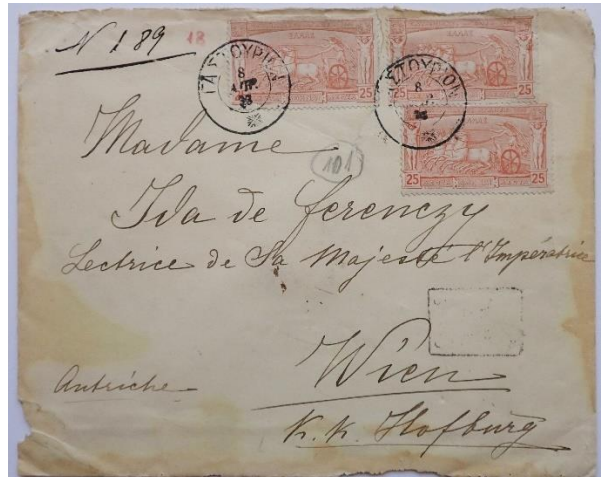 N 189
18
ΓΑΣΤΟΥΡΙΟΝ
8
ΑΠΡ.
ΓΑΣΤΟΥΡΙΟΝ
8
ΕΛΛΑΣ
25
25
25
25
25
Madame
101
Ida de Ferenczy
Lectrice de Sa Majesté l'Impératrice
Wien
Autriche
K. K. Hofburg